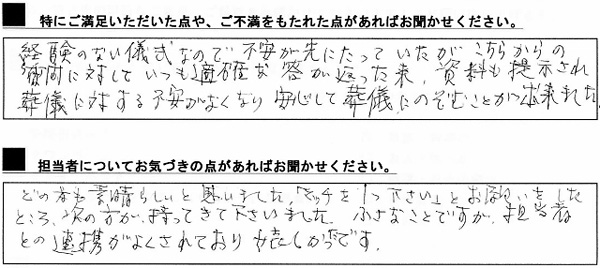 特にご満足いただいた点や、ご不満をもたれた点があればお聞かせください。
経験のない儀式なので不安が先にたっていたが こちらからの
質問に対していつも適確な答が返った来、資料も提示され
葬儀に対する不安がなくなり安心して葬儀にのぞむことが出来ました。
担当者についてお気づきの点があればお聞かせください。
どの方も素晴らしいと思いました。「マッチを1つ下さい」とお願いをした
ところ、次の方が、持ってきて下さいました。ふさなことですが、担当者
との連携がよくされており しかったです。